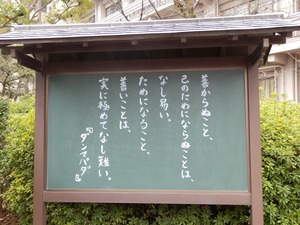 善からぬこと、
己のためにならぬことは、
なし易い。
ためになること、
善いことは、
実に極めてなし難い。
『ダンマパダ』